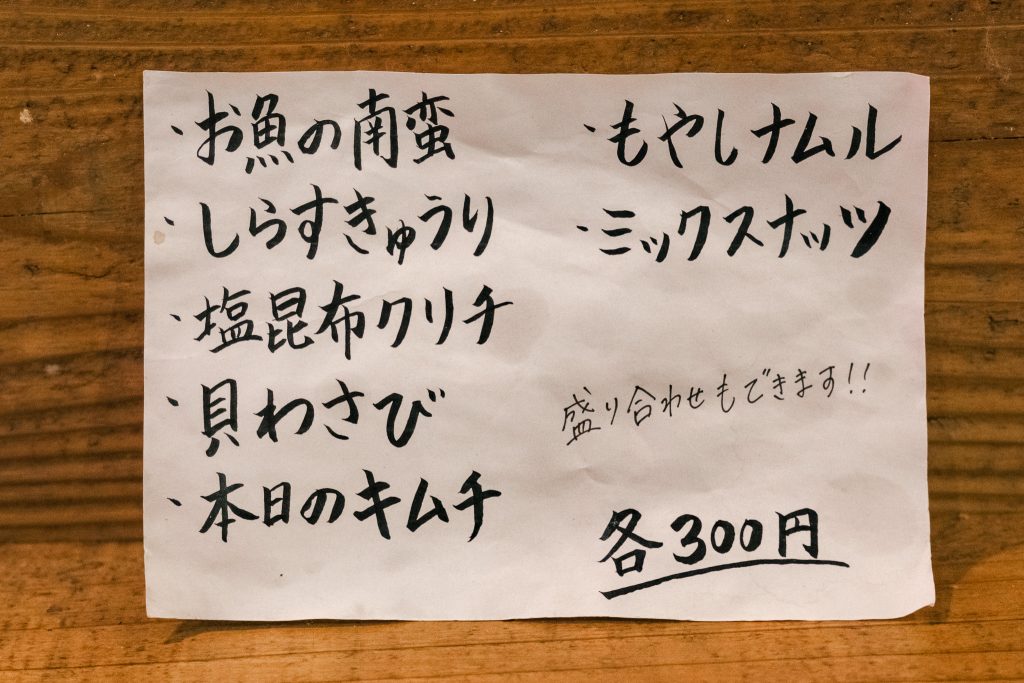 ・お魚の南蛮
・しらすきゅうり
・塩昆布クリチ
・貝わさび
・本日のキムチ
・もやしナムル
・ミックスナッツ
盛り合わせもできます!!
各300円